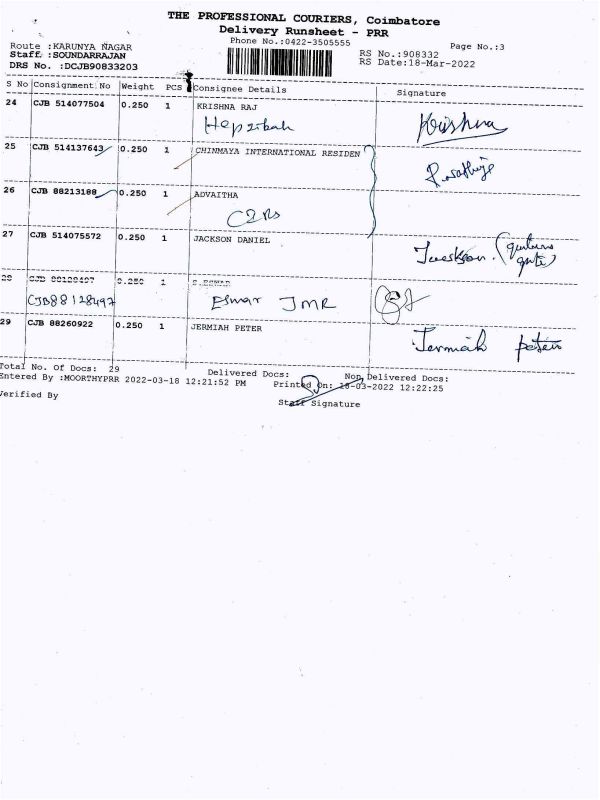 THE PROFESSIONAL COURIERS, Coimbatore
Delivery Runsheet - PRR
Phone No.:0422-3505555
Page No.:3
Route :KARUNYA NAGAR
Staff :SOUNDARRAJAN
DRS No. :DCJB90833203
RS No.:908332
RS Date:18-Mar-2022
S No Consignment No Weight PCS Consignee Details Signature
24 CJB 514077504 0.250 1 KRISHNA RAJ
Hepzibah Krishna
25 CJB 514137643 0.250 1 CHINMAYA INTERNATIONAL RESIDEN
26 CJB 88213188 0.250 1 ADVAITHA
27 CJB 514075572 0.250 1 JACKSON DANIEL
Jackson
28 CJB 88128497 0.250 1 S.ESWAR
CJB88128497 Eswar JMR
29 CJB 88260922 0.250 1 JERMIAH PETER
Jermiah peter
Total No. Of Docs: 29 Delivered Docs: Non Delivered Docs:
Entered By :MOORTHYPRR 2022-03-18 12:21:52 PM Printed On: 18-03-2022 12:22:25
Verified By Staff Signature